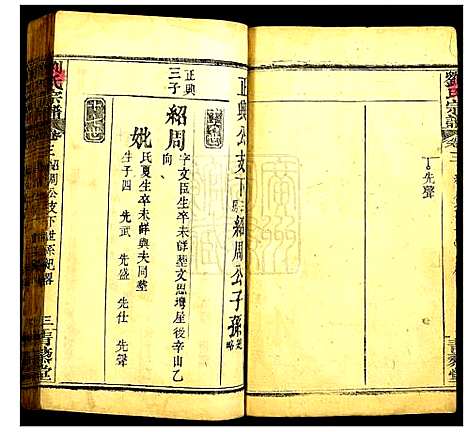 劉氏宗譜
卷三
先聲
青藜堂
正興公支下三房紹周公子孫
正興
三子
紹周
字文臣生卒未鮮塟文思塆屋後辛山乙
向
妣
氏夏生卒未鮮與夫同塟
生子四 先武 先盛 先仕 先聲
氏宗譜
卷三
紹周公支下世系紀畧
三
青藜堂